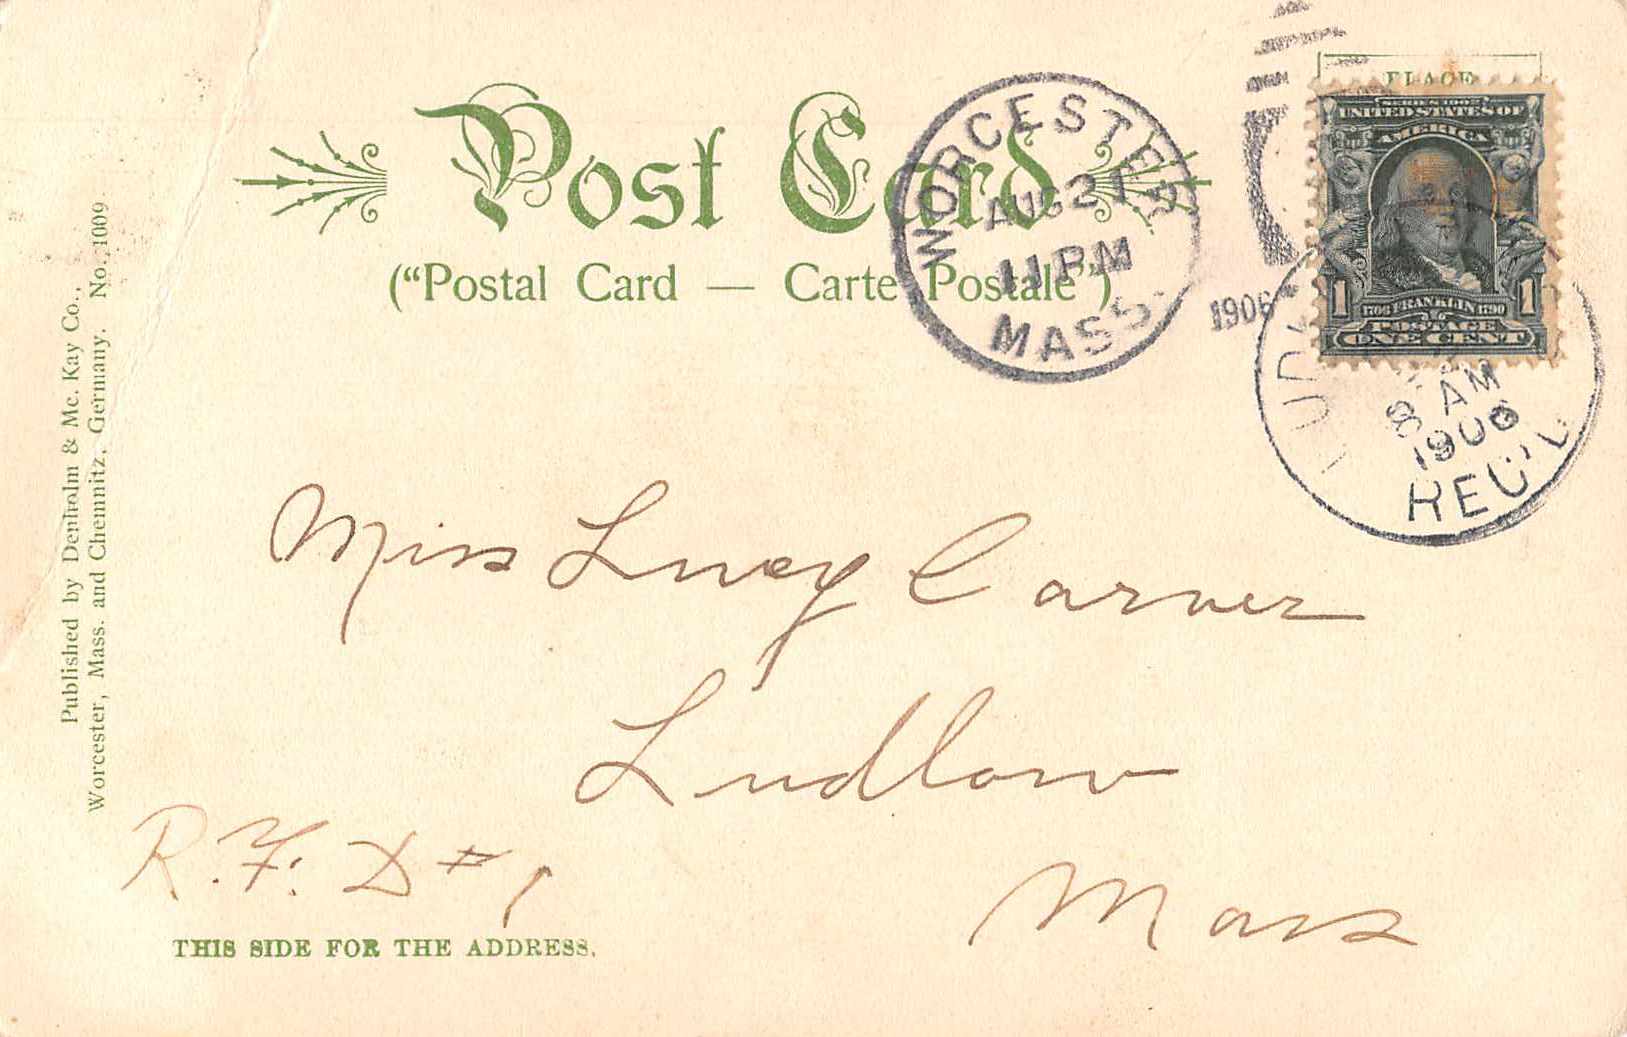 Post Card
("Postal Card — Carte Postale")
WORCESTER
AUG 21
11 PM
MASS.
1906
PLACE
SERIES 1902
UNITED STATES OF
AMERICA
1 1
1706 FRANKLIN 1790
POSTAGE
ONE CENT
8 AM
1906
REC'D
Published by Denholm & Mc. Kay Co.,
Worcester, Mass. and Chemnitz, Germany. No. 1009
Miss Lucy Carver
Ludlow
R. F. D # 1
Mass
THIS SIDE FOR THE ADDRESS.